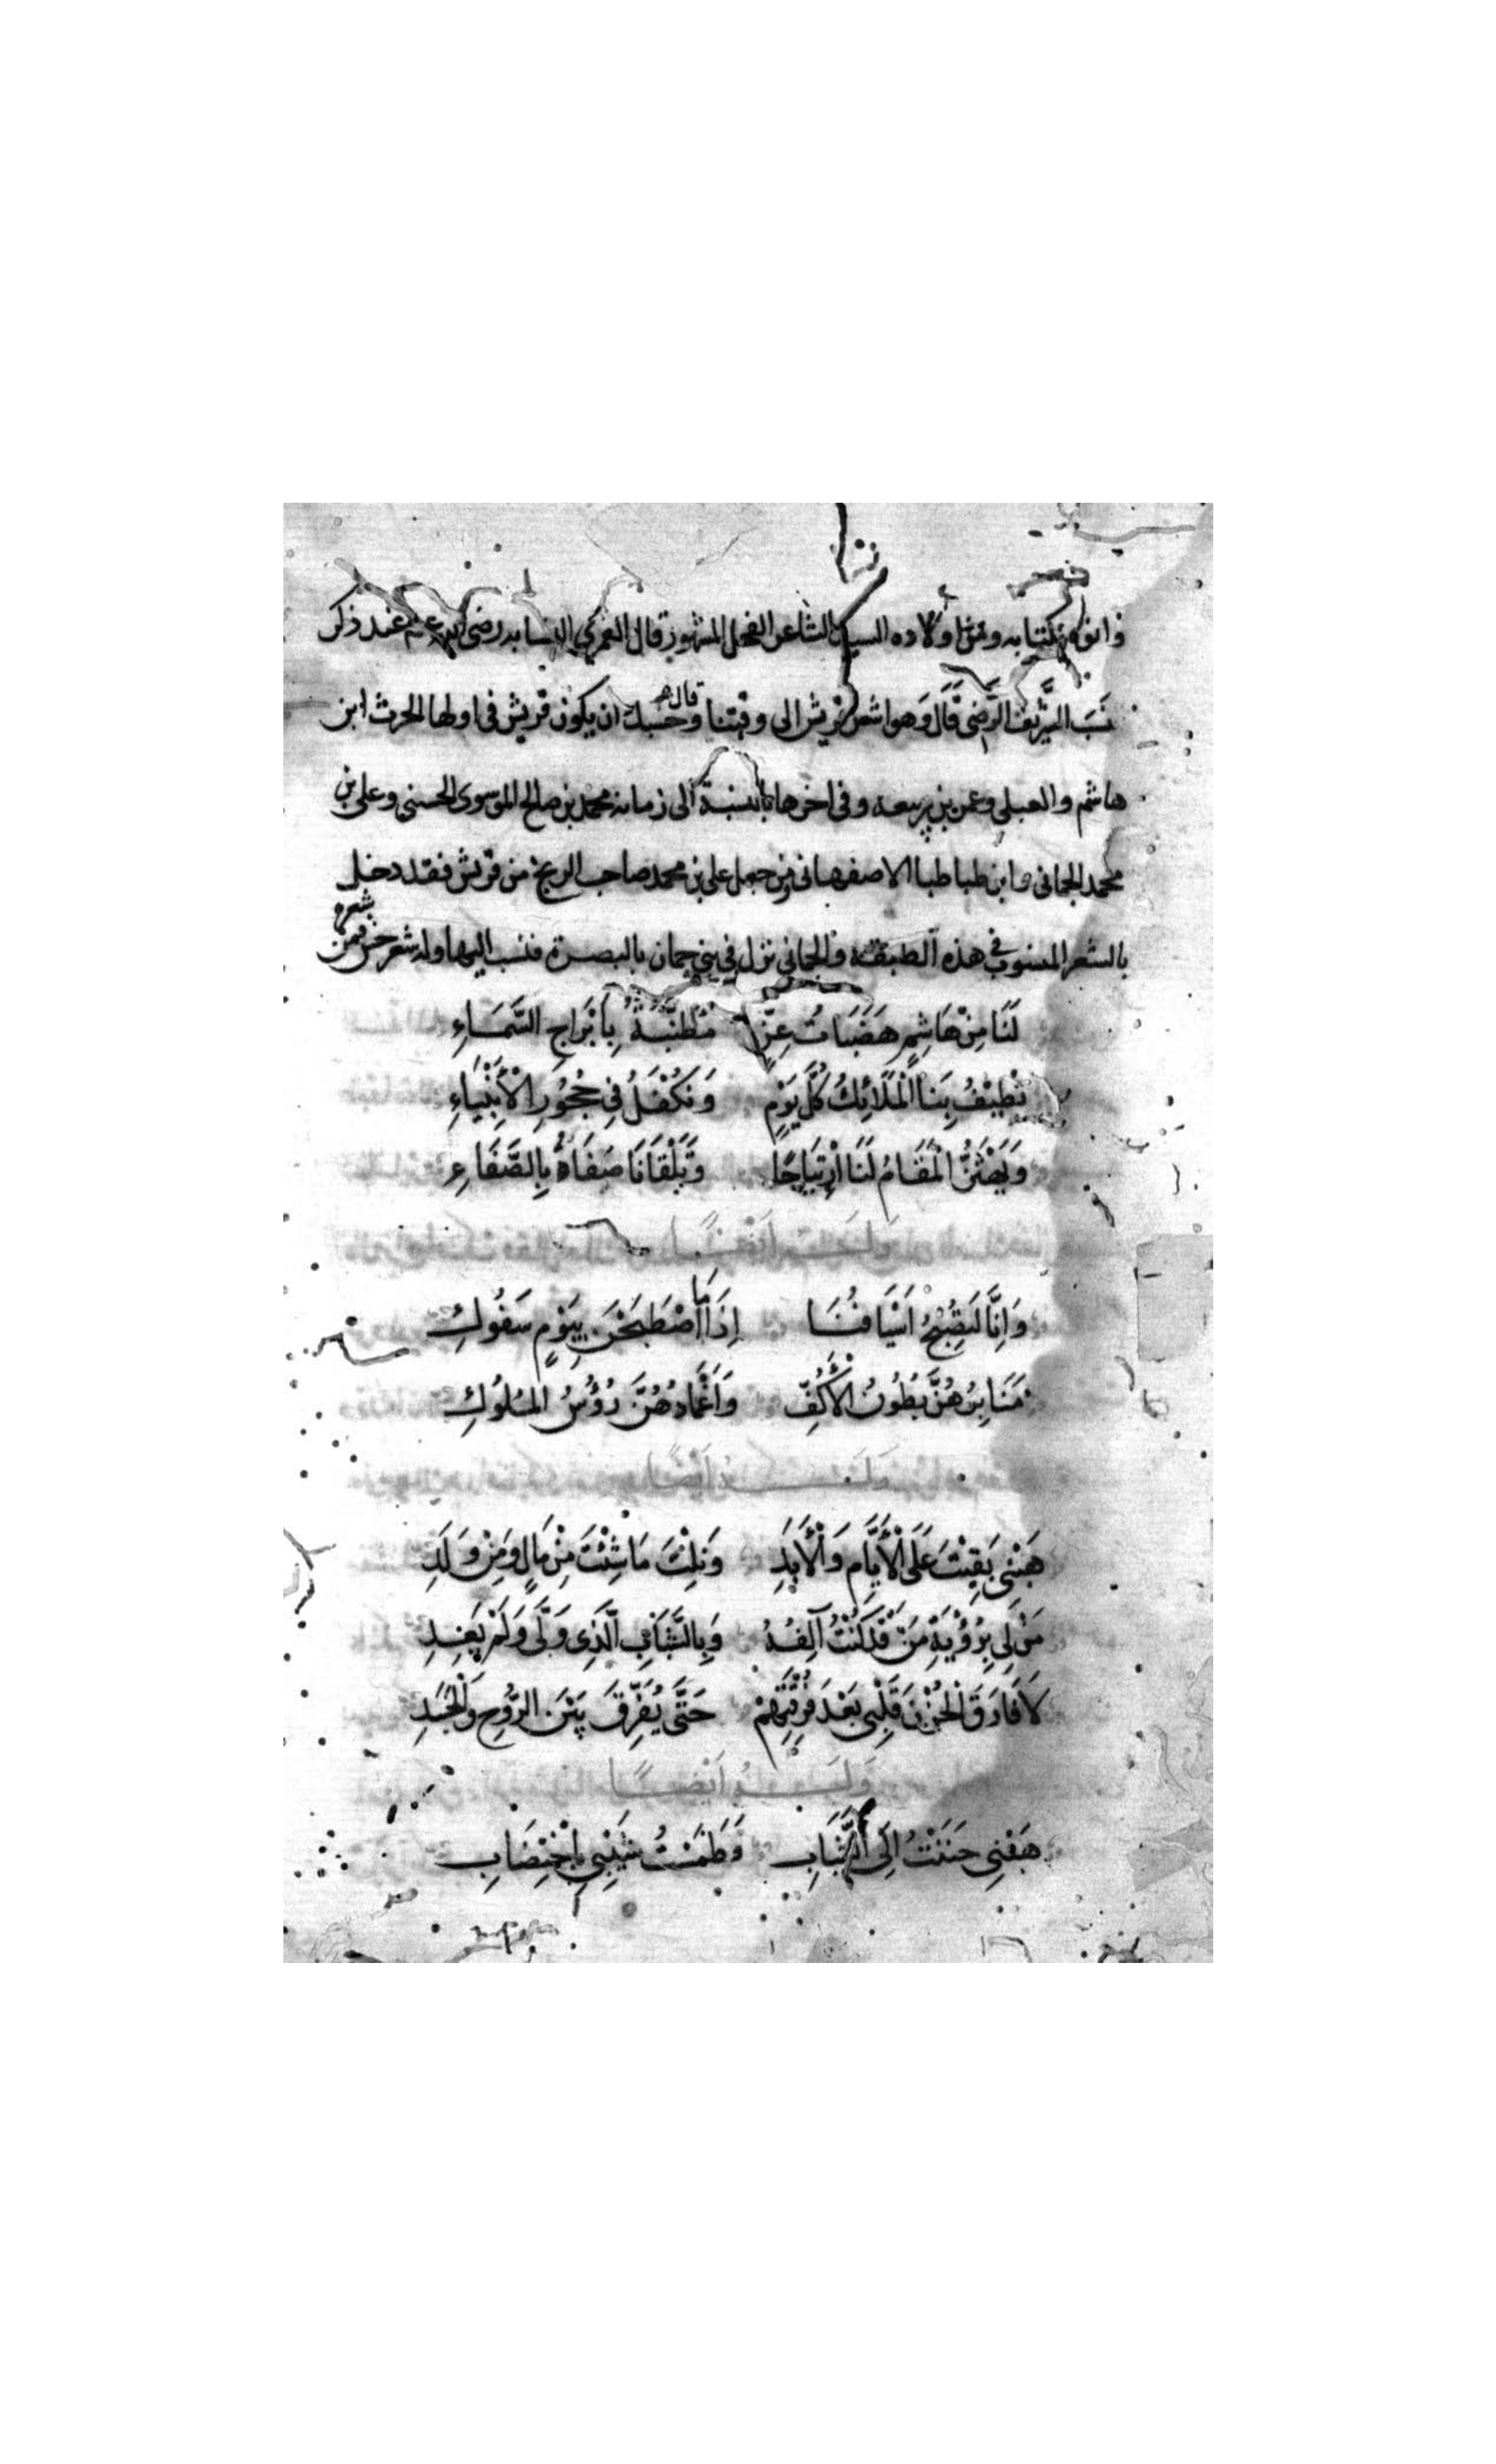 ومن اولاده السيد الشاعر الفحل المشهور قال العمري النسابه رضى الله عنهم عند ذكر
نسب الشريف الرضى قال وهو اشعر قريش الى وقتنا وحسبك ان يكون قريش فى اولها الحرث ابن
هاشم والعبلى وعمر بن ربيعه وفى اخرها بالنسبة الى زمانه محمد بن صالح الموسوى الحسنى وعلى بن
محمد الحمانى وابن طباطبا الاصفهانى ومن جعل على بن محمد صاحب الزنج من قريش فقد دخل
بالشعر المنسوب فى هذه الطبقة والحمانى نزل فى بنى حمان بالبصرة فنسب اليها وله شعر حسن فمن شعره
لَنَا مِنْ هَاشِمٍ هَضَبَاتُ عِزٍّ مُطَنَّبَةٌ بِأَبْرَاجِ السَّمَاءِ
تُطِيْفُ بِنَا الْمَلَائِكُ كُلَّ يَوْمٍ وَنَكْفُلُ فِى حُجُوْرِ الْأَنْبِيَاءِ
وَيَهْتَزُّ الْمَقَامُ لَنَا ارْتِيَاحًا وَتَلْقَانَا صَفَاهُ بِالصَّفَاءِ
وَلَهُ اَيْضًا
وَاِنَّا لَتُصْبِحُ اَسْيَافُنَا اِذَا مَا اصْطَبَحْنَ بِيَوْمٍ سَفُوكِ
مَنَابِرُهُنَّ بُطُونُ الْأَكُفِّ وَاَغْمَادُهُنَّ رُؤُسُ الْمُلُوكِ
وَلَهُ اَيْضًا
هَبْنِى بَقِيْتَ عَلَى الْأَيَّامِ وَالْأَبَدِ وَنِلْتَ مَا شِئْتَ مِنْ مَالٍ وَمِنْ وَلَدِ
مَنْ لِى بِرُؤْيَةِ مَنْ قَدْ كُنْتُ آلَفُهُ وَبِالشَّبَابِ الَّذِى وَلَّى وَلَمْ يَعُدِ
لَا فَارَقَ الْحُزْنُ قَلْبِى بَعْدَ فُرْقَتِهِمْ حَتَّى يُفَرِّقَ بَيْنَ الرُّوْحِ وَالْجَسَدِ
وَلَهُ اَيْضًا
هَبْنِى حَنَنْتُ اِلَى الشَّبَابِ وَطَمَسْتُ شَيْبِى بِاخْتِضَابِ